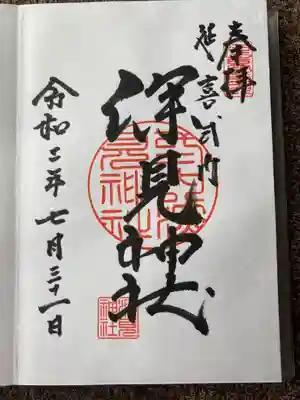 奉拝
延喜式内
深見神社
令和二年七月三十一日
深見神社